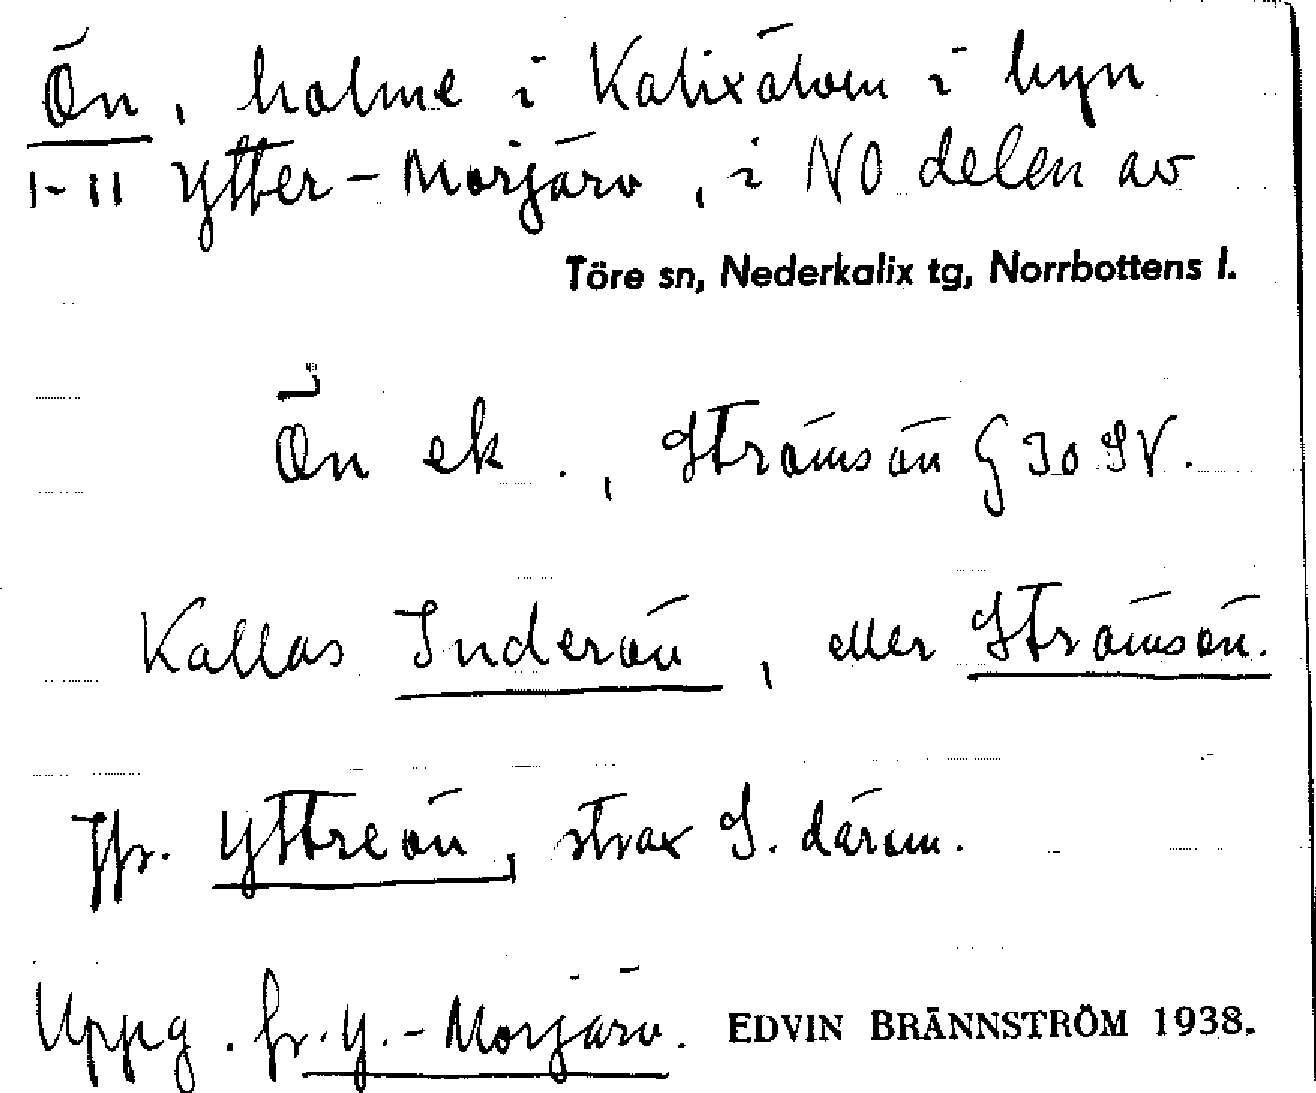 Ön, holme i Kalixälven i byn
I-II Ytter-Morjärv, i NO delen av
Töre sn, Nederkalix tg, Norrbottens l.
Ön ek., Strömsön G 30 SV.
Kallas Inderön, eller Strömsön.
Jfr. Yttreön, strax S. därom.
Uppg. fr. Y.-Morjärv. EDVIN BRÄNNSTRÖM 1938.